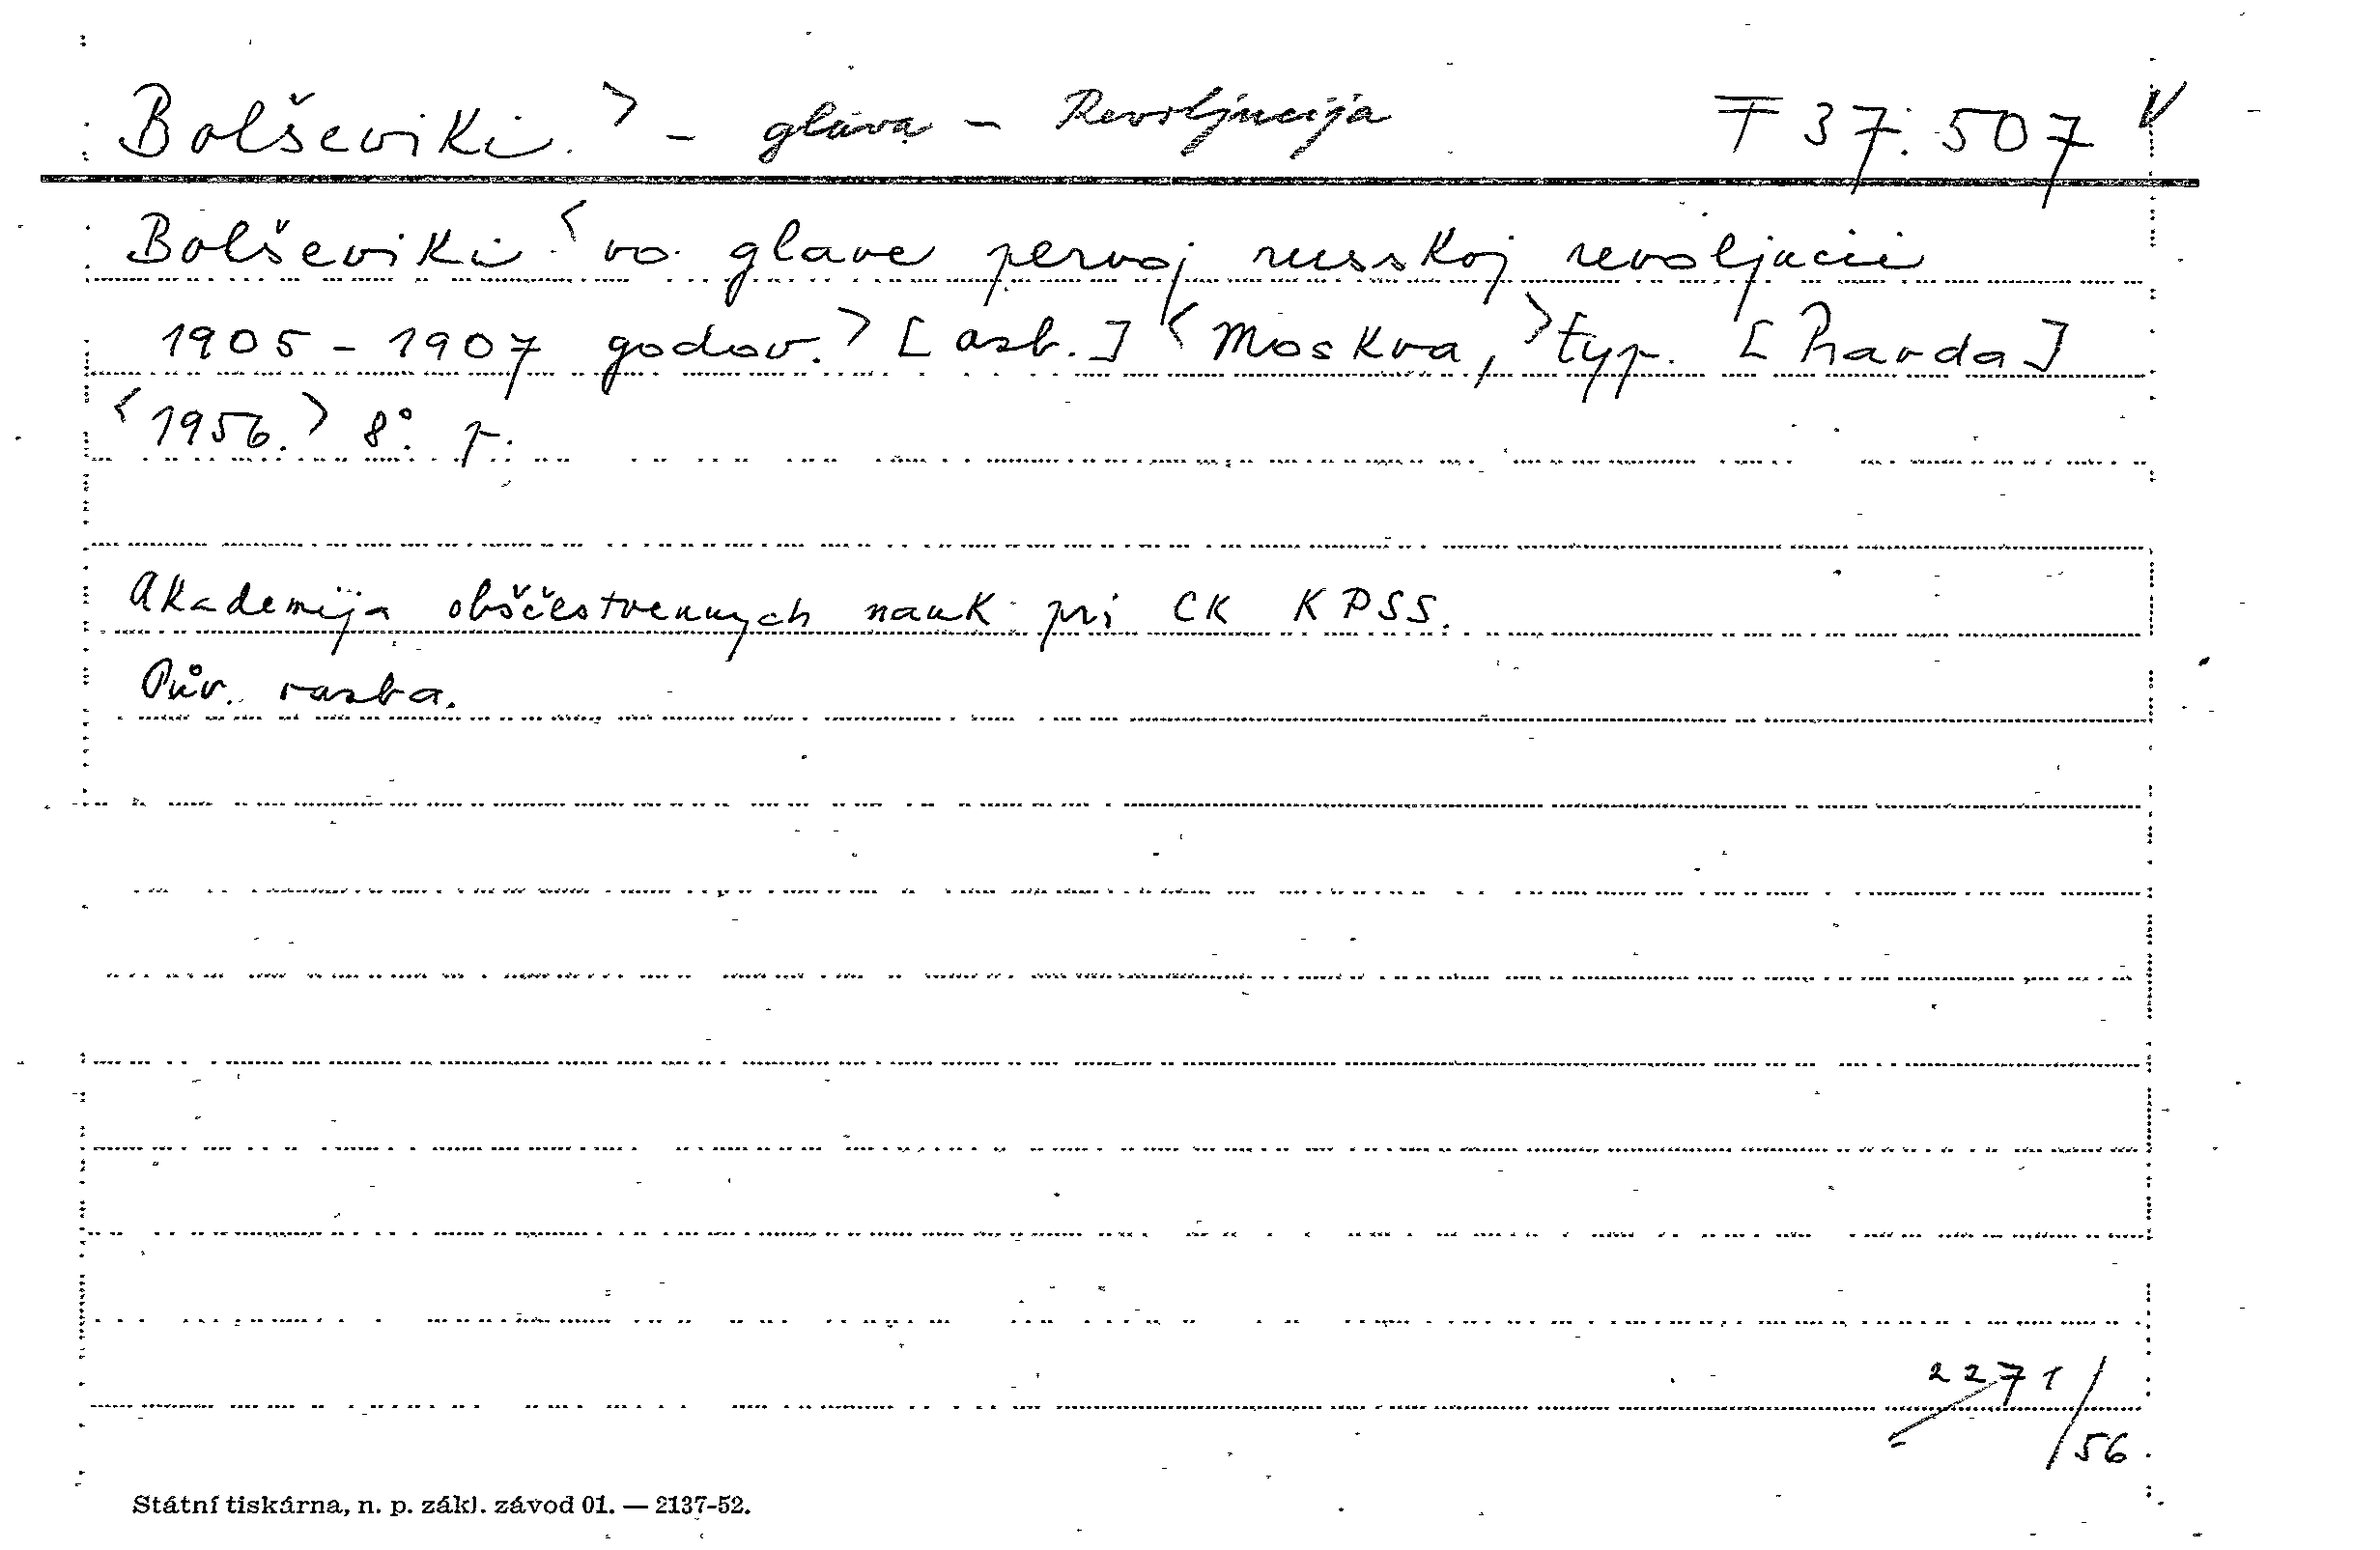 Bolševiki.> - glava - Revoljucija F 37.507
Bolševiki <vo glave pervoj russkoj revoljucii
1905-1907 godov.> [asb.] <Moskva,> typ. [Pravda]
<1956.> 8°. p.
Akademija obščestvennych nauk pri CK KPSS.
Pův. vazba.
2271/56.
Státní tiskárna, n. p. zákl. závod 01. — 2137-52.